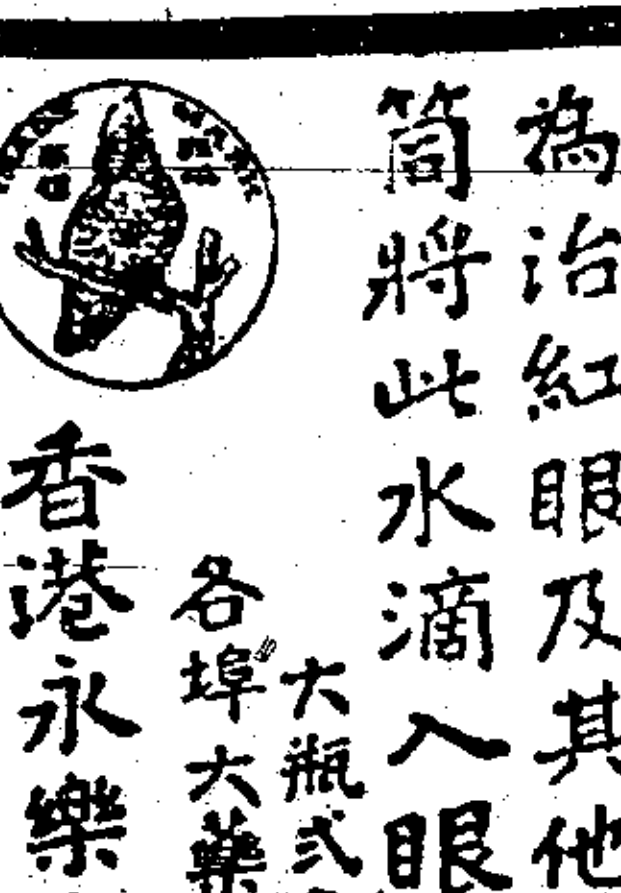 為治紅眼及其他
筒將此水滴入眼
大瓶弍
各埠大藥
香港永樂